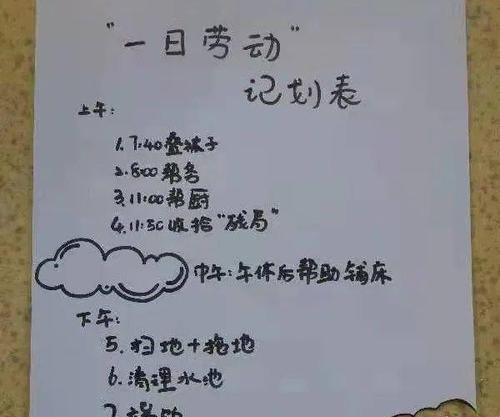 “一日劳动”
记划表
上午:
1.7:40叠被子
2.8:00帮务
3.11:00帮厨
4.11:50收拾“残局”
中午:午休后帮助铺床
下午:
5.扫地+拖地
6.清理水池
7.